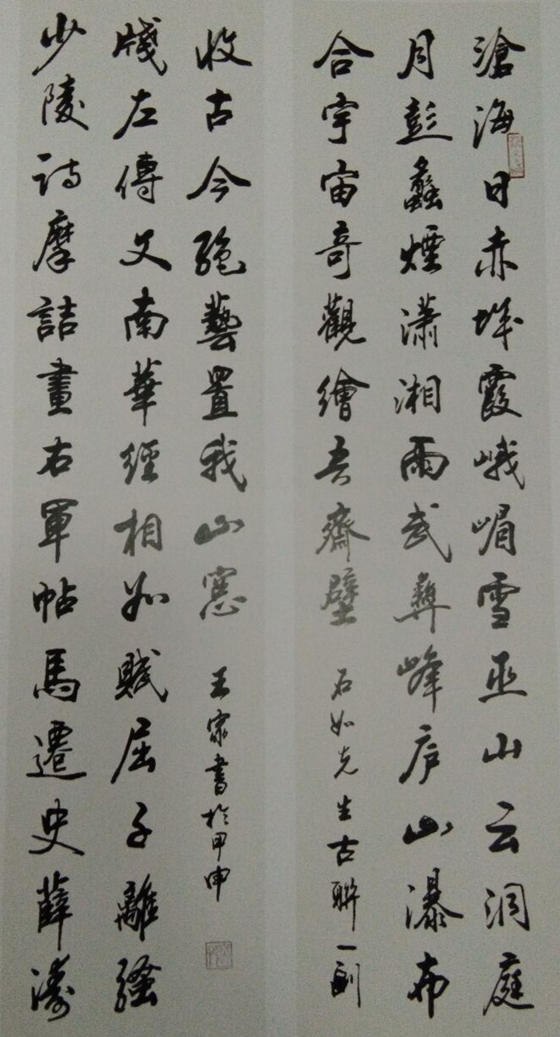 滄海日赤城霞峨嵋雪巫山云洞庭
月彭蠡煙瀟湘雨武彝峰庐山瀑布
合宇宙奇觀繪吾齋壁
石如先生古聯一副
少陵詩摩詰畫右軍帖馬遷史薛濤
牋左傳文南華經相如賦屈子離騷
收古今絕藝置我山窓
王家書於甲申